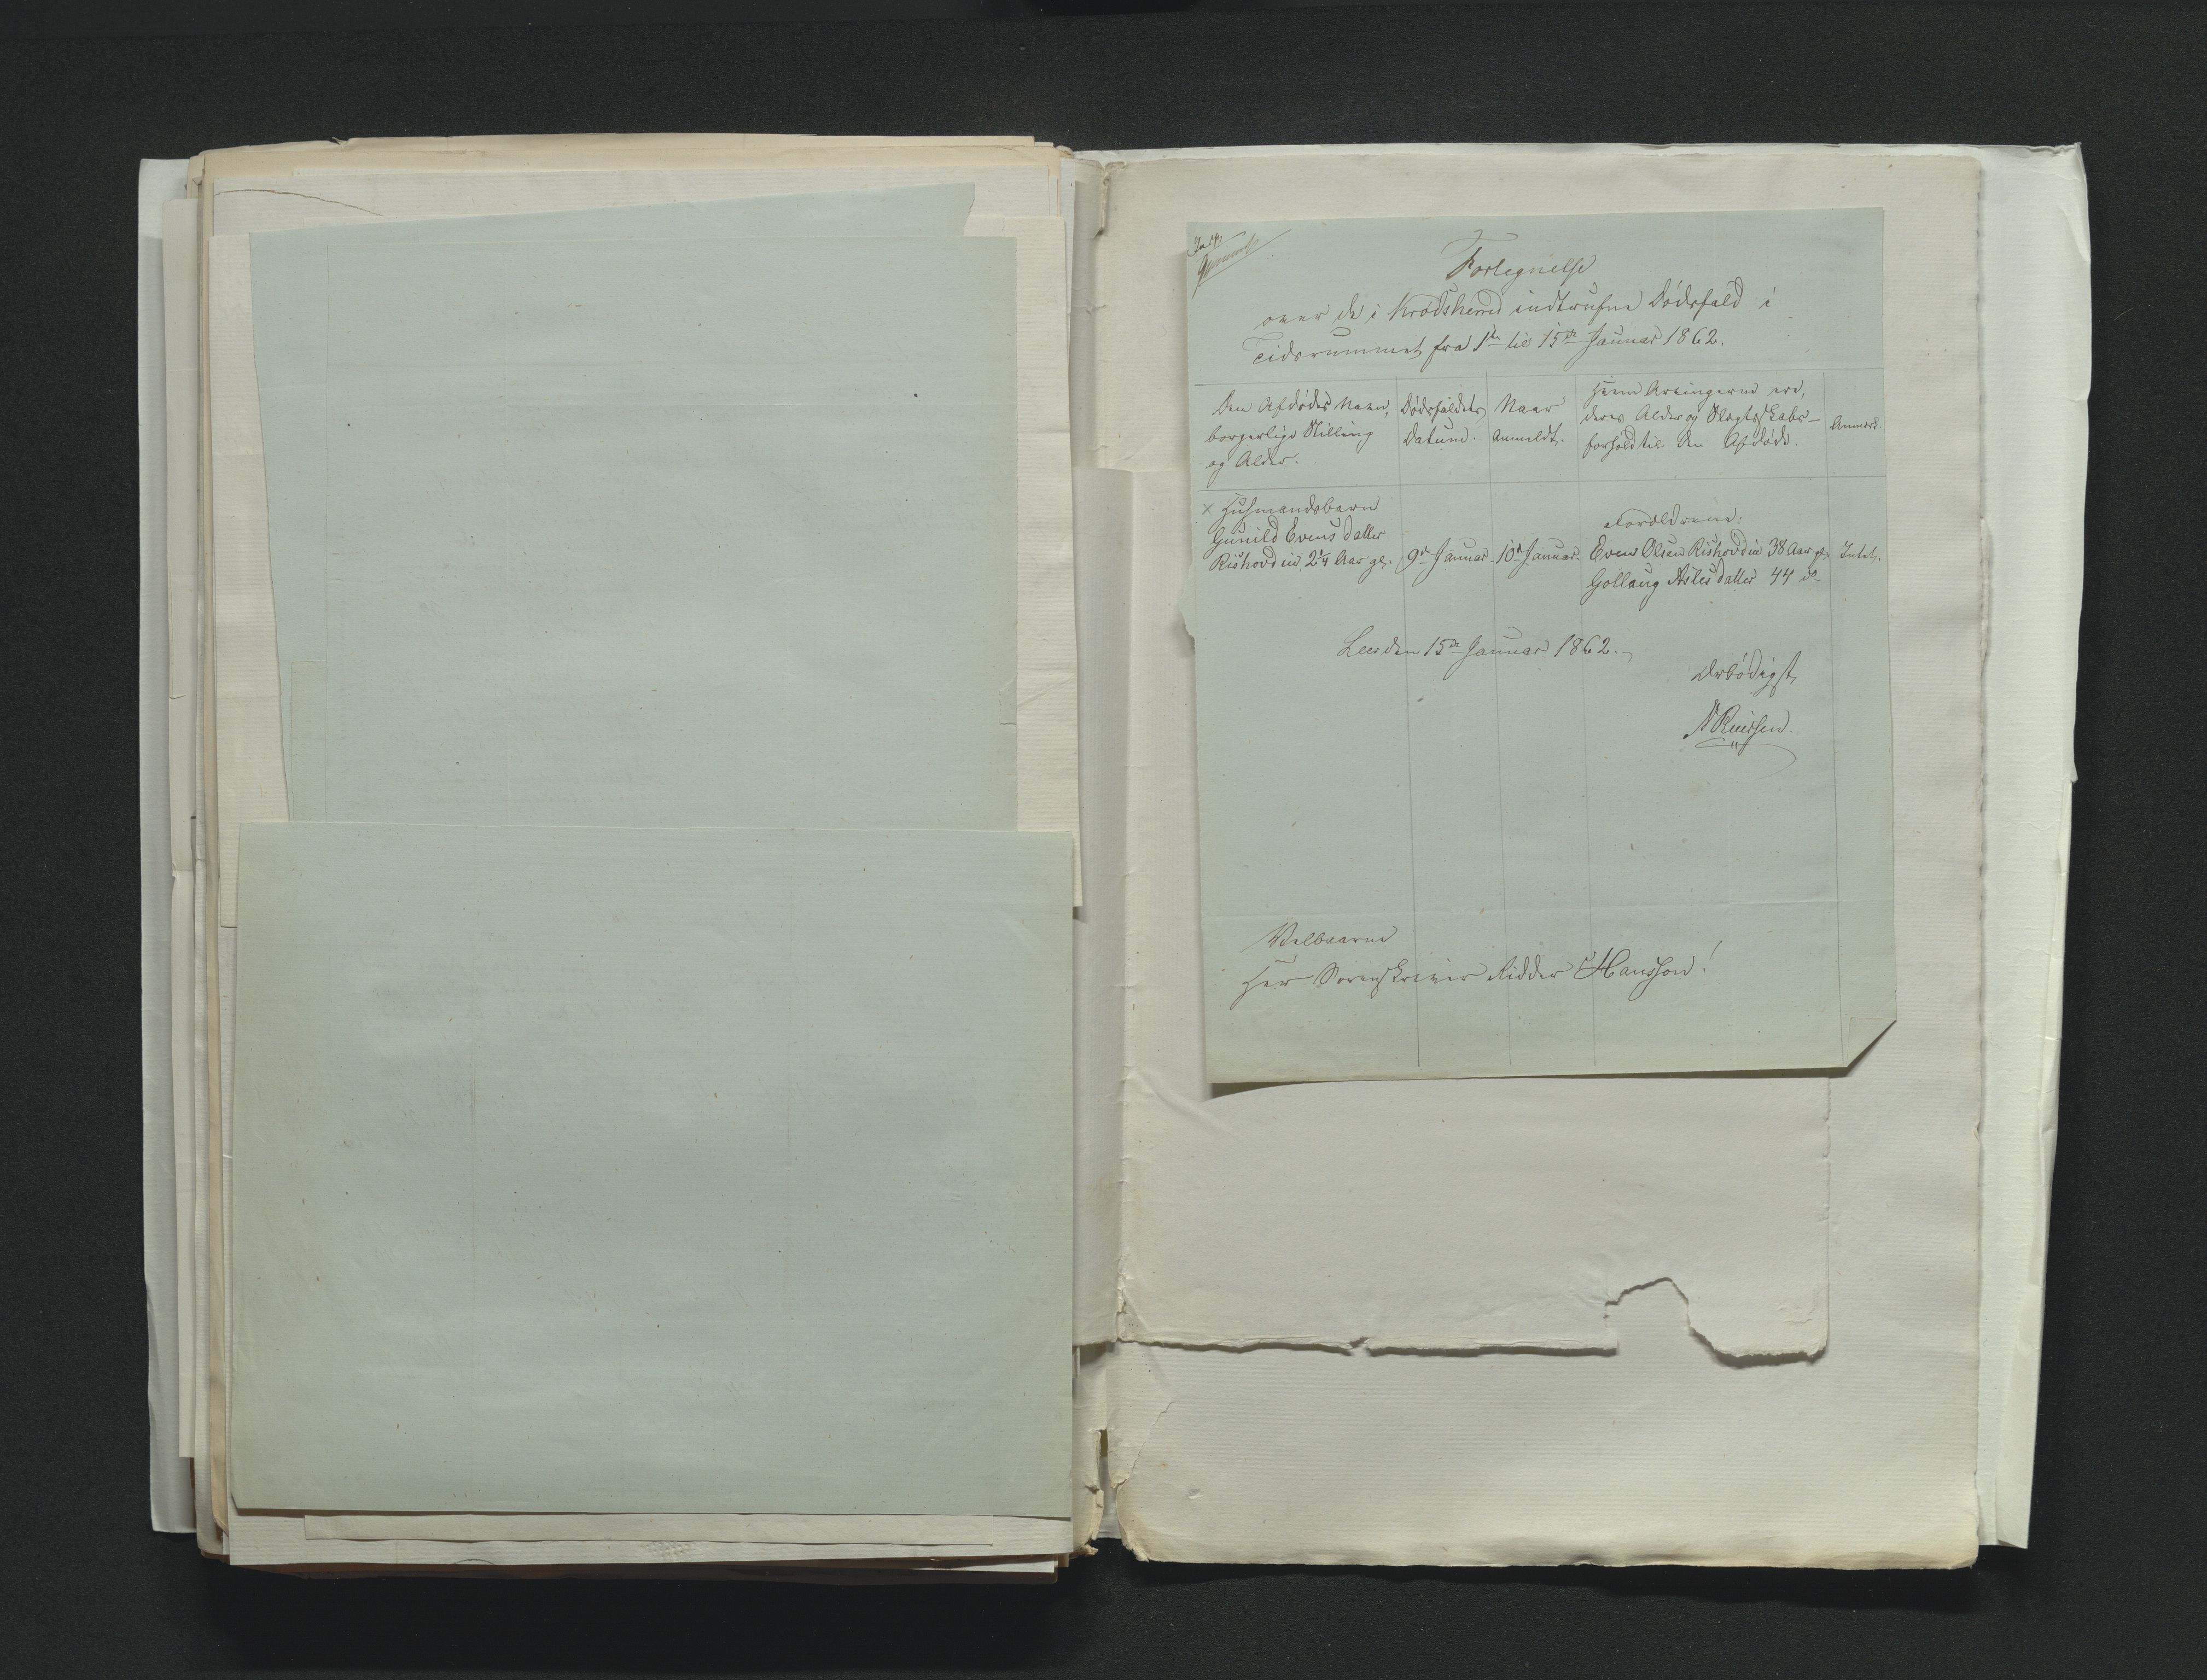 Fortegnelse
over de i Krødsherred indtrufne Dødsfald i
Tidsrummet fra 1ste til 15de Januar 1862.
Den Afdødes Navn, borgerlige Stilling og Alder.
Dødsfaldets Datum.
Naar Anmeldt.
Hvem Arvingerne ere, deres Alder og Slægtskabs-forhold til den Afdøde.
Anmærk.
x Husmandsbarn
Gunild Evensdatter
Rishovdeie, 2 1/4 Aar gl.
9de Januar
10de Januar.
Forældrene:
Even Olsen Rishovdeie 38 Aar gl.
Gollaug Aslesdatter 44 do
Intet.
Lee den 15de Januar 1862.
Ærbødigst
Velbaarne
Herr Sorenskriver Ridder Hansson!